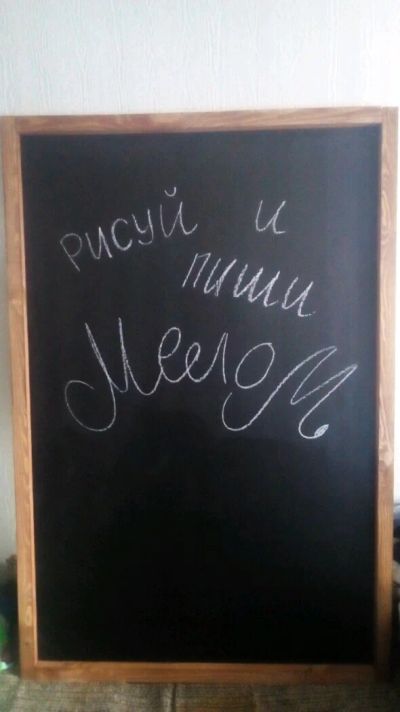 рисуй и
пиши
Мелом